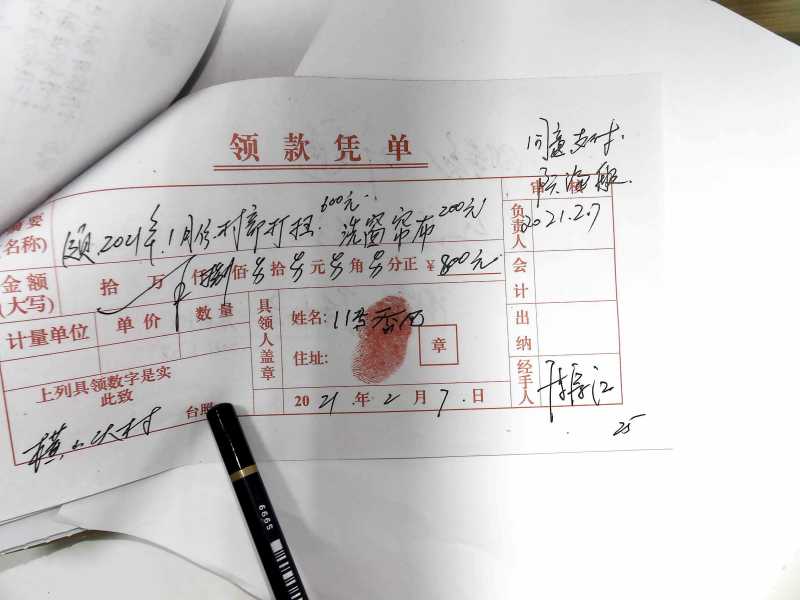 领款凭单
同意支付.
审核
摘要(名称)
领2021年1月份村部打扫600元. 洗窗帘布200元
负责人
2021.2.7
金额(大写)
拾 万 仟捌佰另拾另元另角另分正 ¥800元
会计
计量单位 单价 数量
具领人盖章
姓名:
住址:
章
出纳
上列具领数字是实
此致
台照
2021年2月7日
经手人
25
6665